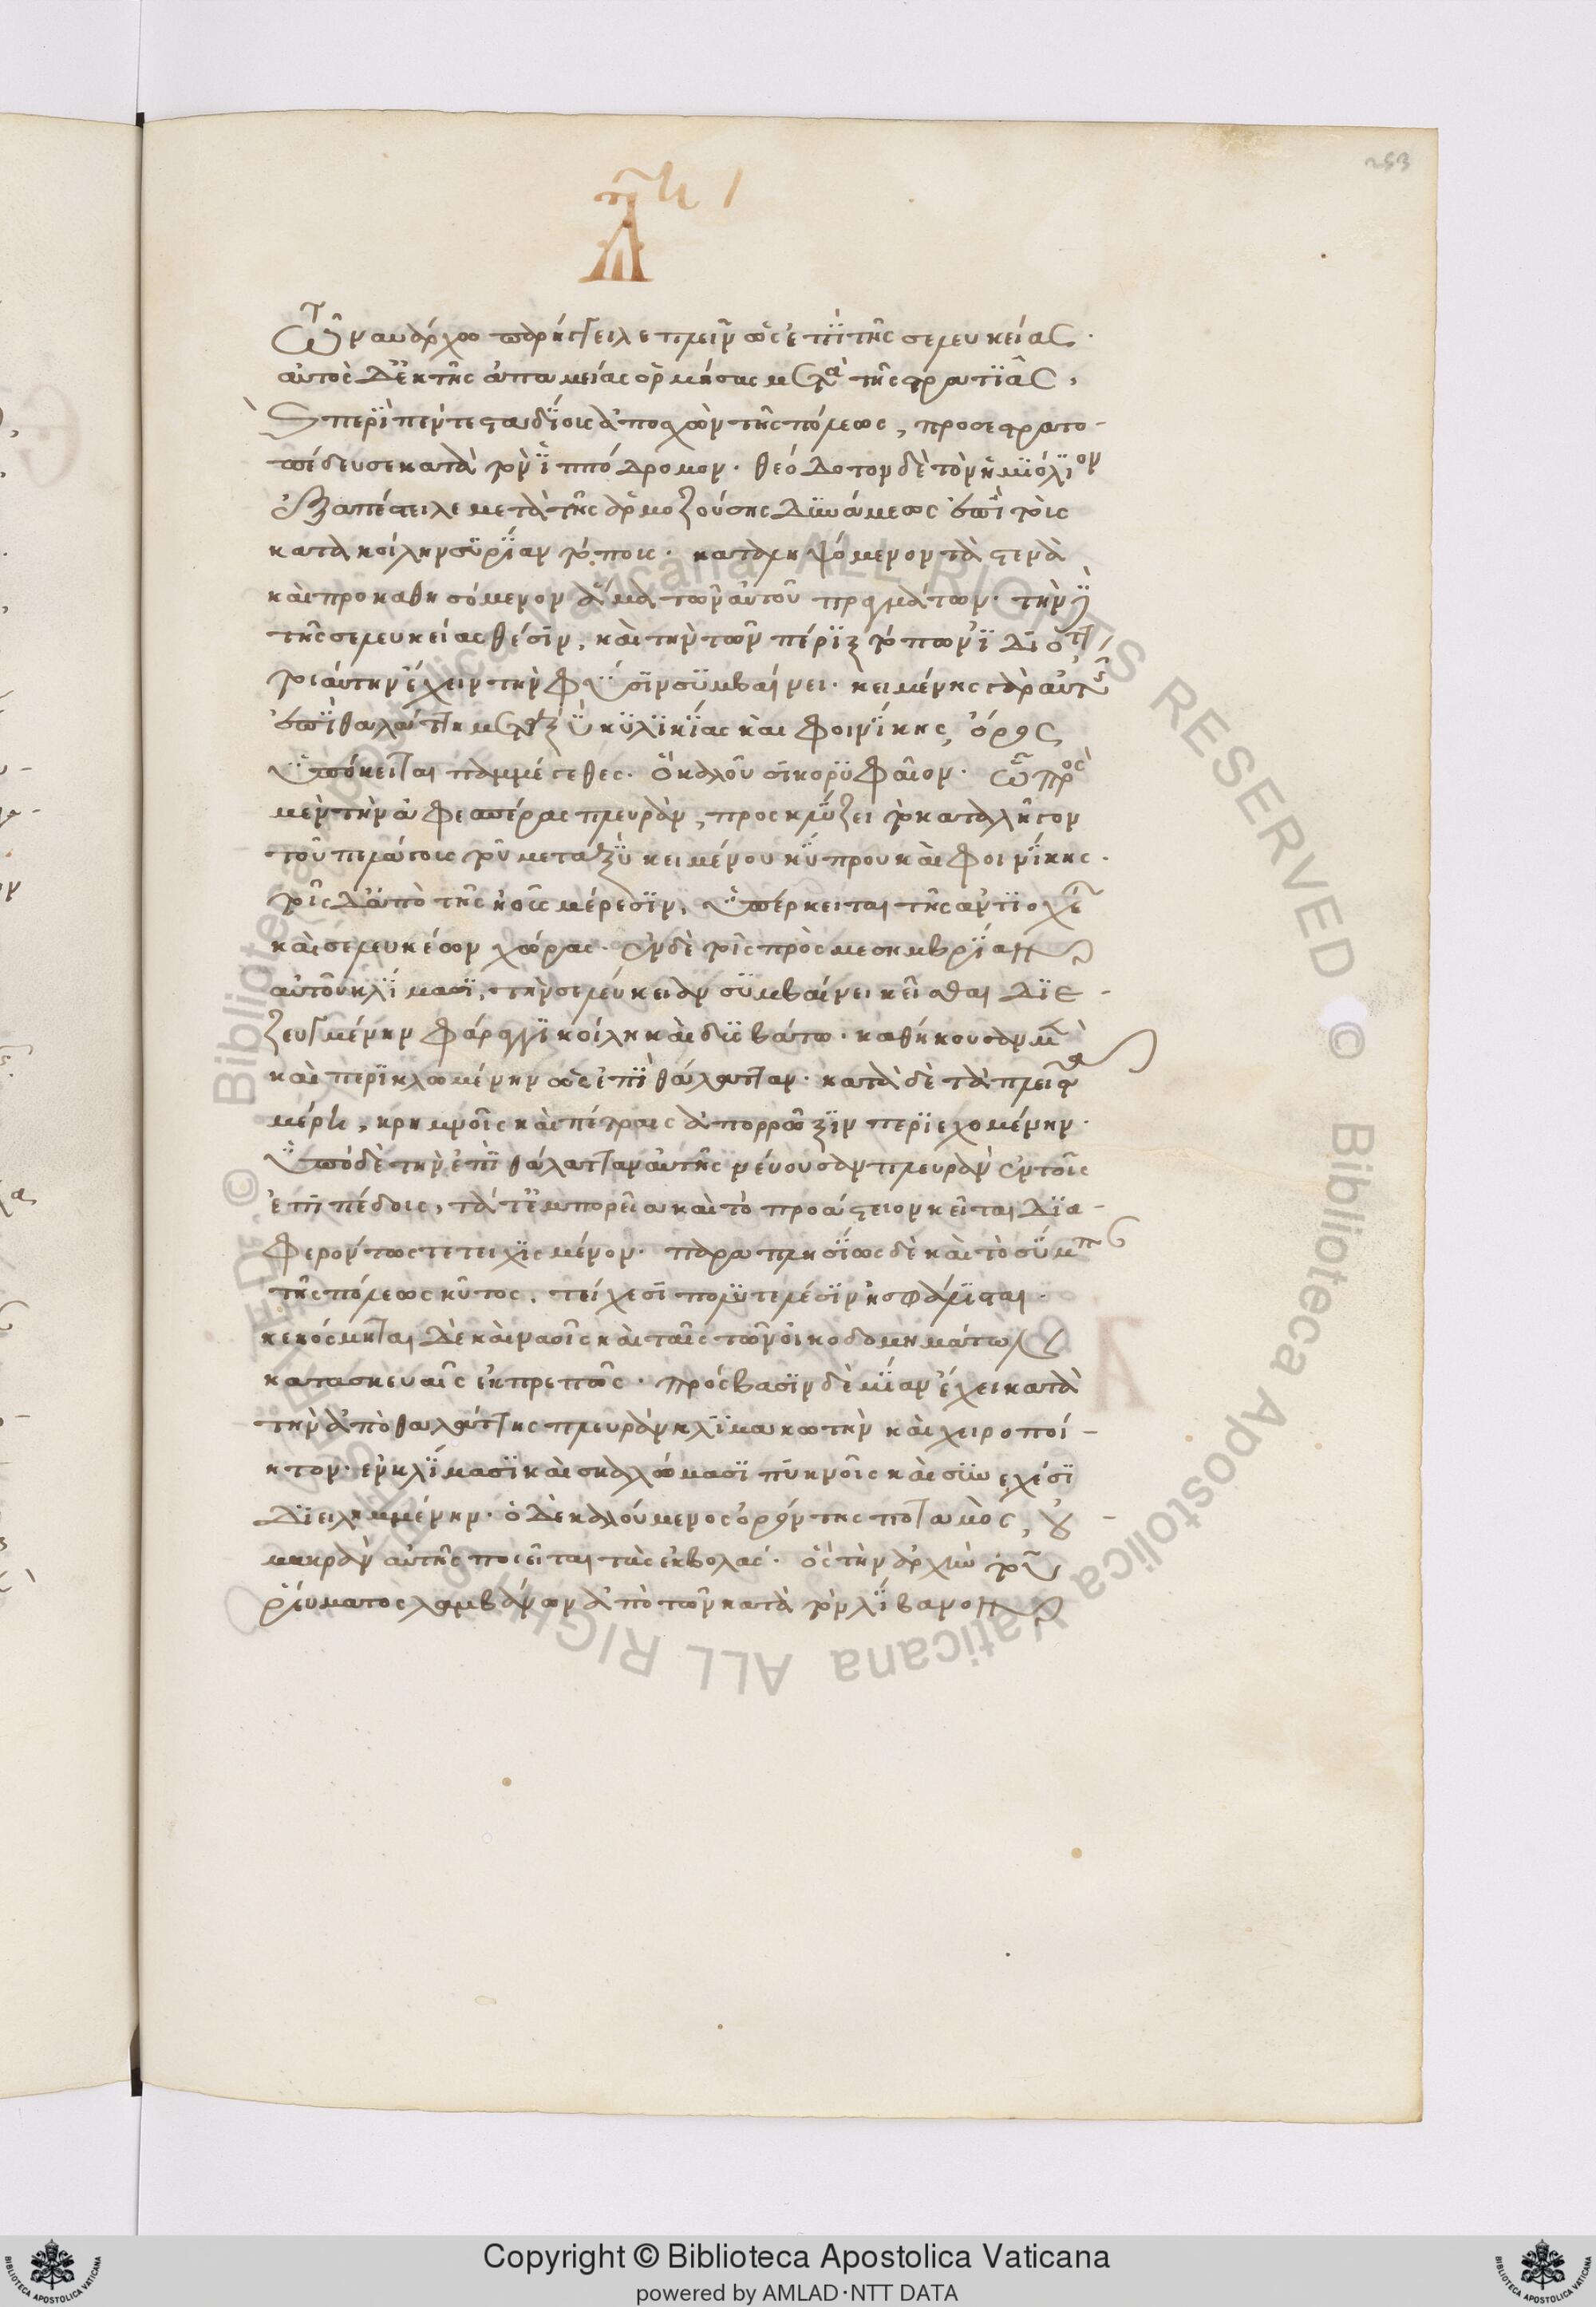 253
τῷ ναυάρχῳ παρήγγειλε πλεῖν ὡς ἐπὶ τῆς σελευκείας.
αὐτὸς δ' ἐκ τῆς ἀπαμείας ὁρμήσας μετὰ τῆς στρατιᾶς,
καὶ περὶ πέντε σταδίοις ἀποσχὼν τῆς πόλεως, προσεστρατο-
πέδευσε κατὰ τὸν ἱππόδρομον. θεόδοτον δὲ τὸν ἡμιόλιον
ἐξαπέστειλε μετὰ τῆς ἁρμοζούσης δυνάμεως ἐπὶ τοὺς
κατὰ κοίλην συρίαν τόποις. καταληψόμενον τὰ στενὰ
καὶ προκαθησόμενον ἅμα τῶν αὐτοῦ πραγμάτων. τὴν δὲ
τῆς σελευκείας θέσιν, καὶ τὴν τῶν πέριξ τόπων ἰδιότητα
τοιαύτην ἔχειν τὴν φύσιν συμβαίνει. κειμένης γὰρ αὐτῆς
ἐπὶ θαλάττη μεταξὺ κυλικίας καὶ φοινίκης, ὄρος
ὑπόκειται παμμέγεθες. ὃ καλοῦσιν κορυφαῖον. ὧ πρὸς
μὲν τὴν ἀφεσπέρας πλευρὰν, προσκλύζει τὸ καταλῆγον
τοῦ πελάγοις τοῦ μεταξὺ κειμένου κύπρου καὶ φοινίκης.
τοῖς δ' ἀπὸ τῆς ἠοῦς μέρεσιν, ὑπέρκειται τῆς ἀντιοχέων
καὶ σελευκέων χώρας. ἐν δὲ τοῖς πρὸς μεσημβρίαν
αὐτοῦ κλίμασι, τὴν σελεύκειαν συμβαίνει κεῖσθαι διε-
ζευγμένην φάραγγι κοίλη καὶ δυσβάτω. καθήκουσαν μὲν
καὶ περικλωμένην ὡς ἐπὶ θάλατταν. κατὰ δὲ τὰ πλεῖστα
μέρη, κρημνοῖς καὶ πέτραις ἀπορρῶξιν περιεχομένην.
ὑπὸ δὲ τὴν ἐπὶ θάλατταν αὐτῆς νεύουσαν πλευρὰν ἐν τοῖς
ἐπιπέδοις, τά τ' ἐμπορεῖα καὶ τὸ προάστειον κεῖται δια-
φερόντως τετειχισμένον. παραπλησίως δὲ καὶ τὸ σύμπαν
τῆς πόλεως κῦτος, τείχεσι πολυτελέσιν ἠσφάλισται.
κεκόσμηται δὲ καὶ ναοῖς καὶ ταῖς τῶν οἰκοδομημάτων
κατασκευαῖς ἐκπρεπῶς. πρόσβασιν δὲ μίαν ἔχει κατὰ
τὴν ἀπὸ θαλάττης πλευρὰν κλιμακωτὴν καὶ χειροποί-
ητον. ἐγκλίμασι καὶ σκαλώμασι πυκνοῖς καὶ συνεχέσι
διειλημμένην. ὁ δὲ καλούμενος ὀρόντης ποταμὸς, οὐ
μακρὰν αὐτῆς ποιεῖται τὰς ἐκβολὰς. ὃς τὴν ἀρχὴν τοῦ
ῥεύματος λαμβάνων ἀπὸ τῶν κατὰ τὸν λίβανον
Copyright © Biblioteca Apostolica Vaticana
powered by AMLAD·NTT DATA